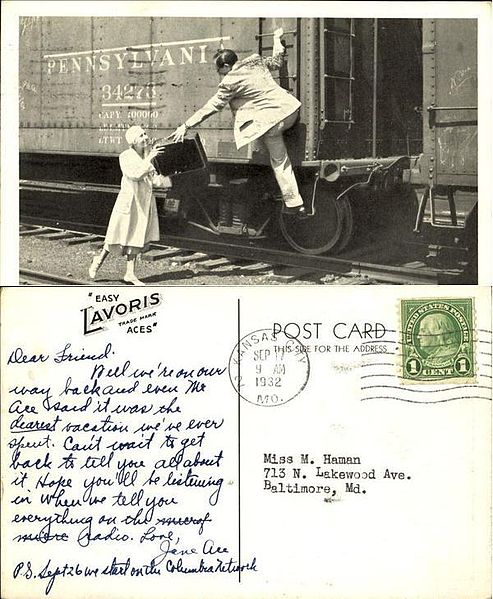 PENNSYLVANI
34273
CAPY. 100000
"EASY
LAVORIS
TRADE MARK
ACES"
Dear Friend.
Well we're on our
way back and even Mr
Ace said it was the
dearest vacation we've ever
spent. Can't wait to get
back to tell you all about
it. Hope you'll be listening
in when we tell you
everything on the
radio. Love,
Jane Ace
P.S. Sept 26 we start on the Columbia Network
KANSAS CITY
2
SEP 17
9 AM
1932
MO.
POST CARD
THIS SIDE FOR THE ADDRESS
UNITED STATES POSTAGE
1 CENT 1
Miss M. Haman
713 N. Lakewood Ave.
Baltimore, Md.